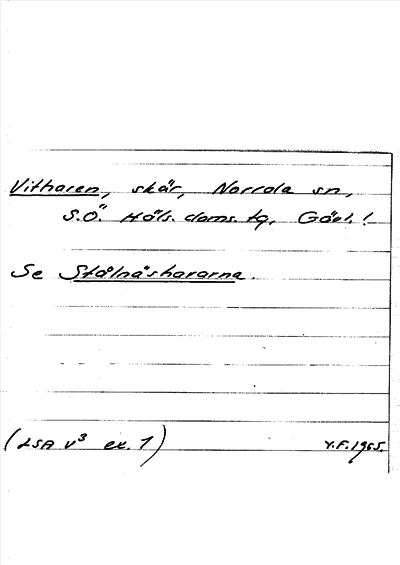 Vitharen, skär, Norrala sn,
S.Ö. Häls. doms. tg, Gävl.!
Se Stålnäshararna.
(LSA V³ ex. 1) Y.F. 1965.